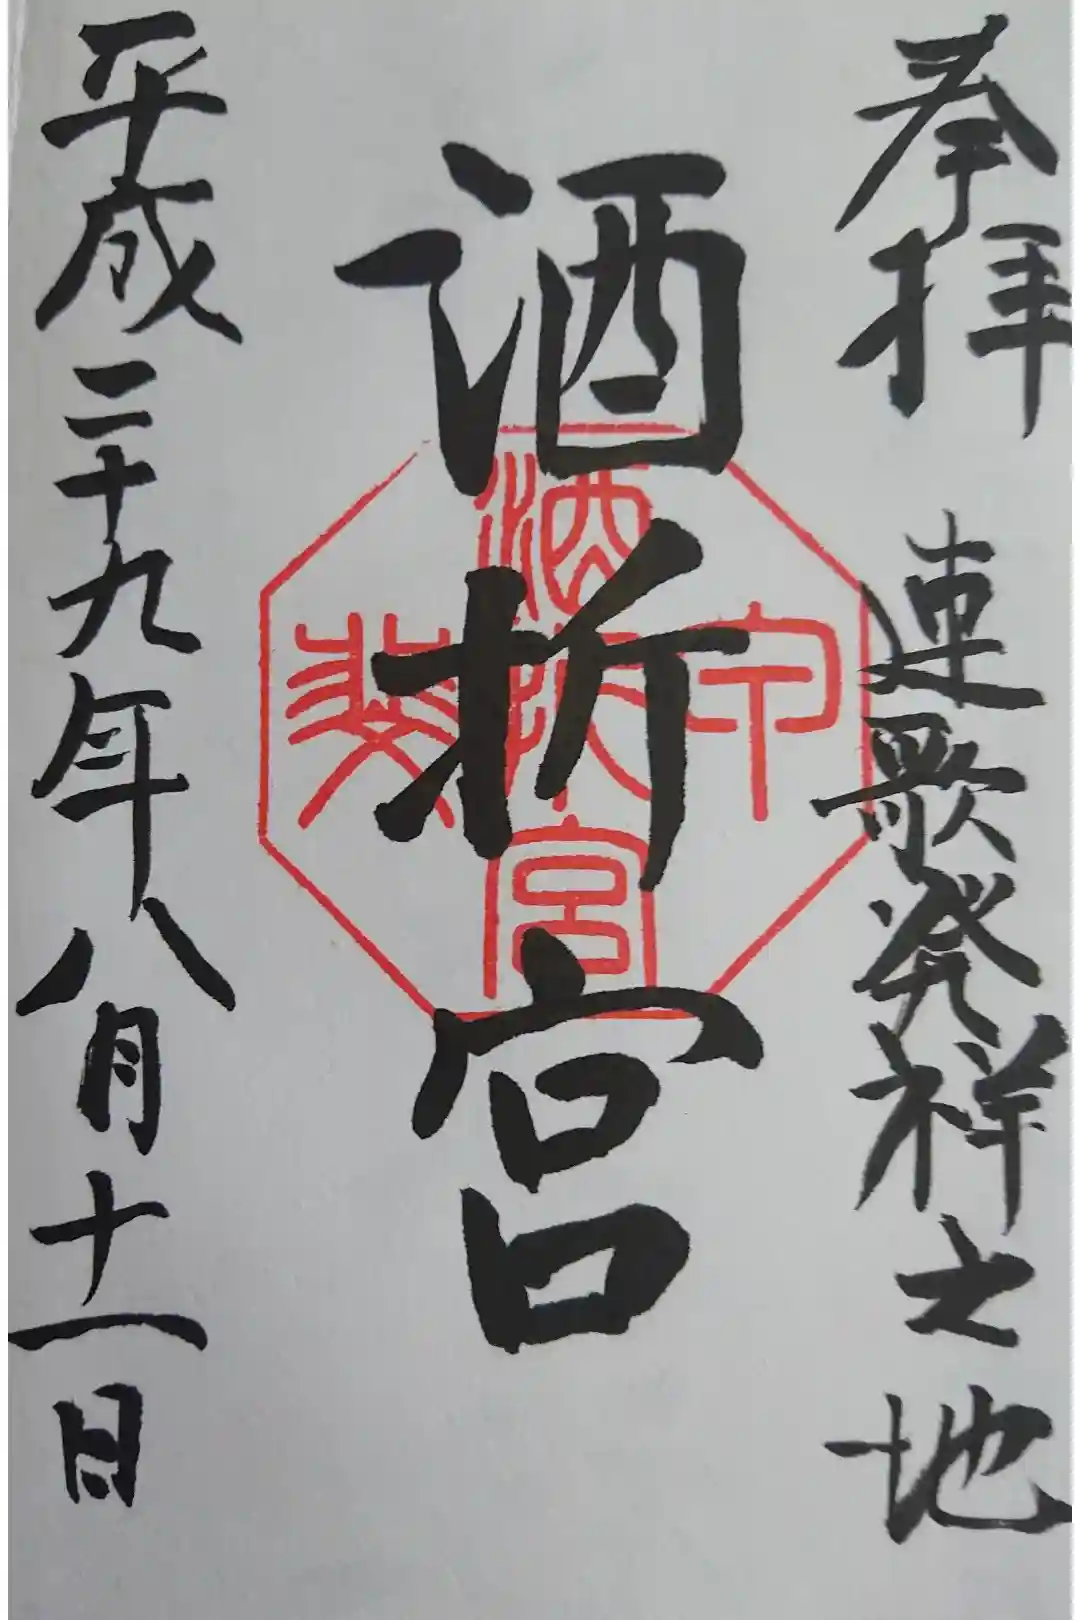 奉拝 連歌発祥之地
酒折宮
甲斐
酒折宮
平成二十九年八月十一日